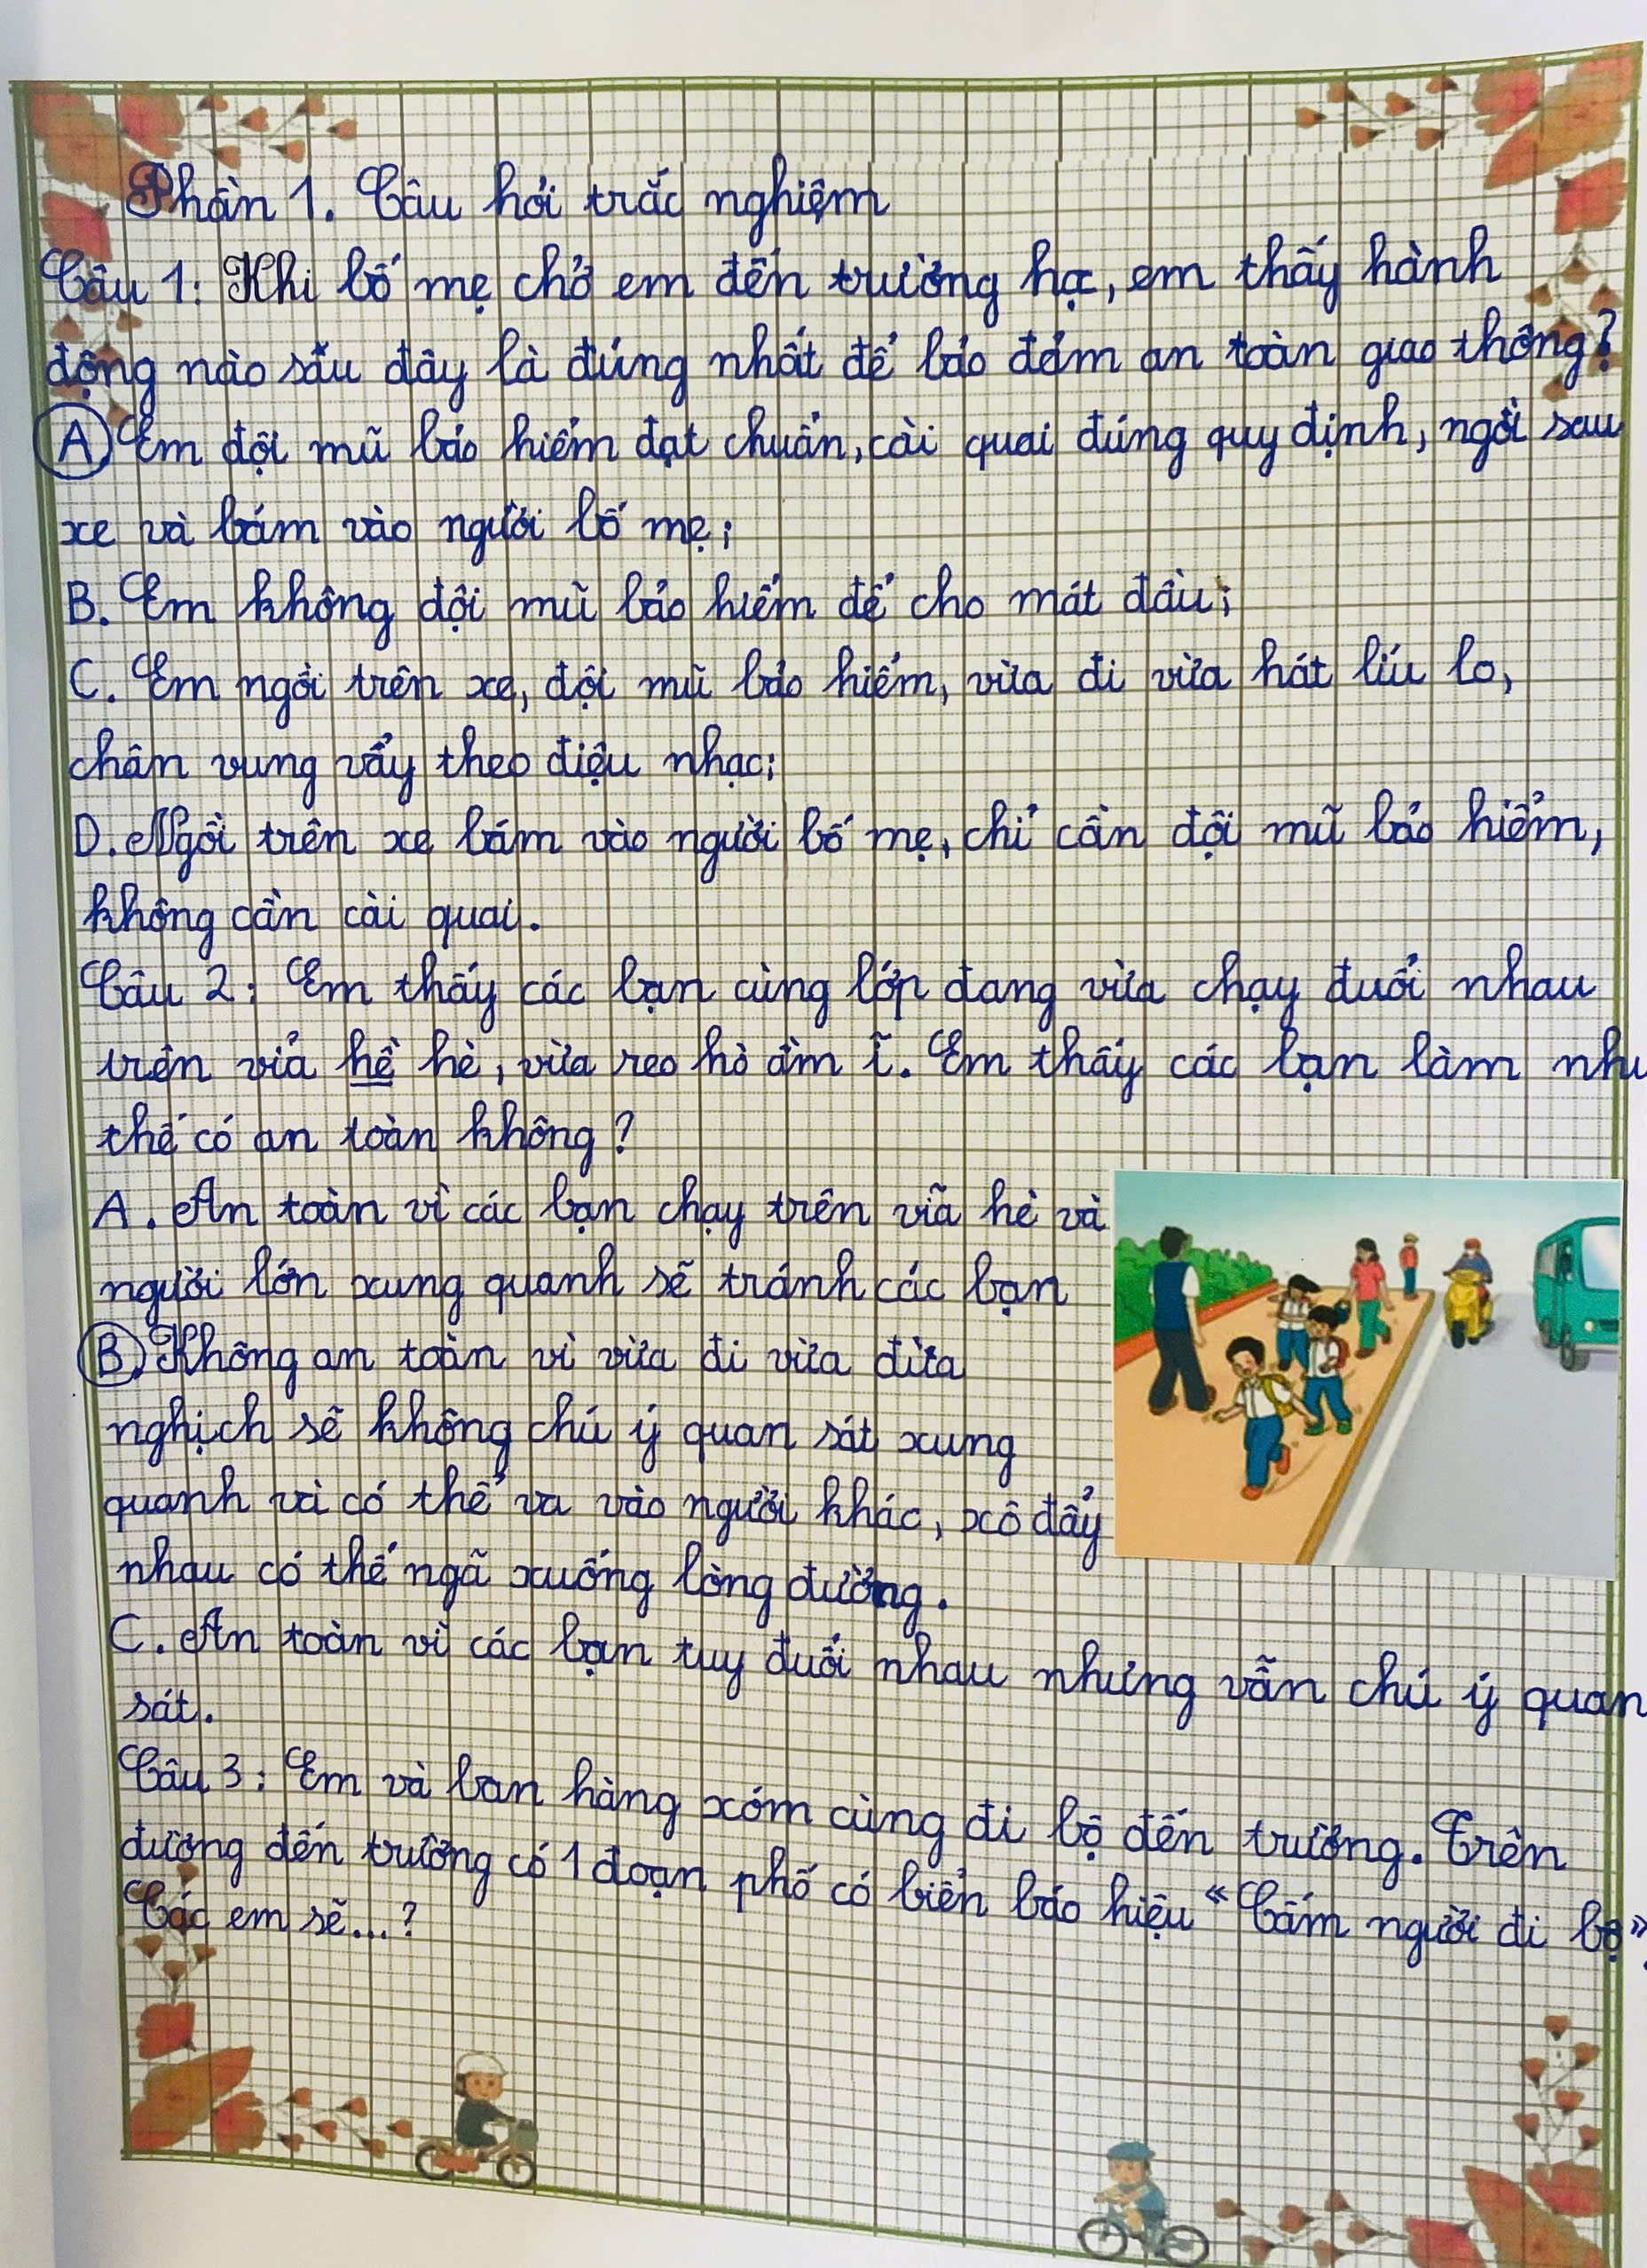 Phần 1. Câu hỏi trắc nghiệm
Câu 1: Khi bố mẹ chở em đến trường học, em thấy hành
động nào sau đây là đúng nhất để bảo đảm an toàn giao thông?
A Em đội mũ bảo hiểm đạt chuẩn, cài quai đúng quy định, ngồi sau
xe và bám vào người bố mẹ;
B. Em không đội mũ bảo hiểm để cho mát đầu;
C. Em ngồi trên xe, đội mũ bảo hiểm, vừa đi vừa hát líu lo,
chân vung vẩy theo điệu nhạc;
D. Ngồi trên xe bám vào người bố mẹ, chỉ cần đội mũ bảo hiểm,
không cần cài quai.
Câu 2: Em thấy các bạn cùng lớp đang vừa chạy đuổi nhau
trên vỉa hề hè, vừa reo hò ầm ĩ. Em thấy các bạn làm như
thế có an toàn không?
A. An toàn vì các bạn chạy trên vĩa hè và
người lớn xung quanh sẽ tránh các bạn
B. Không an toàn vì vừa đi vừa đừa
nghịch sẽ không chú ý quan sát xung
quanh và có thể va vào người khác, xô đẩy
nhau có thể ngã xuống lòng đường.
C. An toàn vì các bạn tuy đuổi nhau nhưng vẫn chú ý quan
sát.
Câu 3: Em và bạn hàng xóm cùng đi bộ đến trường. Trên
đường đến trường có 1 đoạn phố có biển báo hiệu "Cấm người đi bộ".
Các em sẽ...?